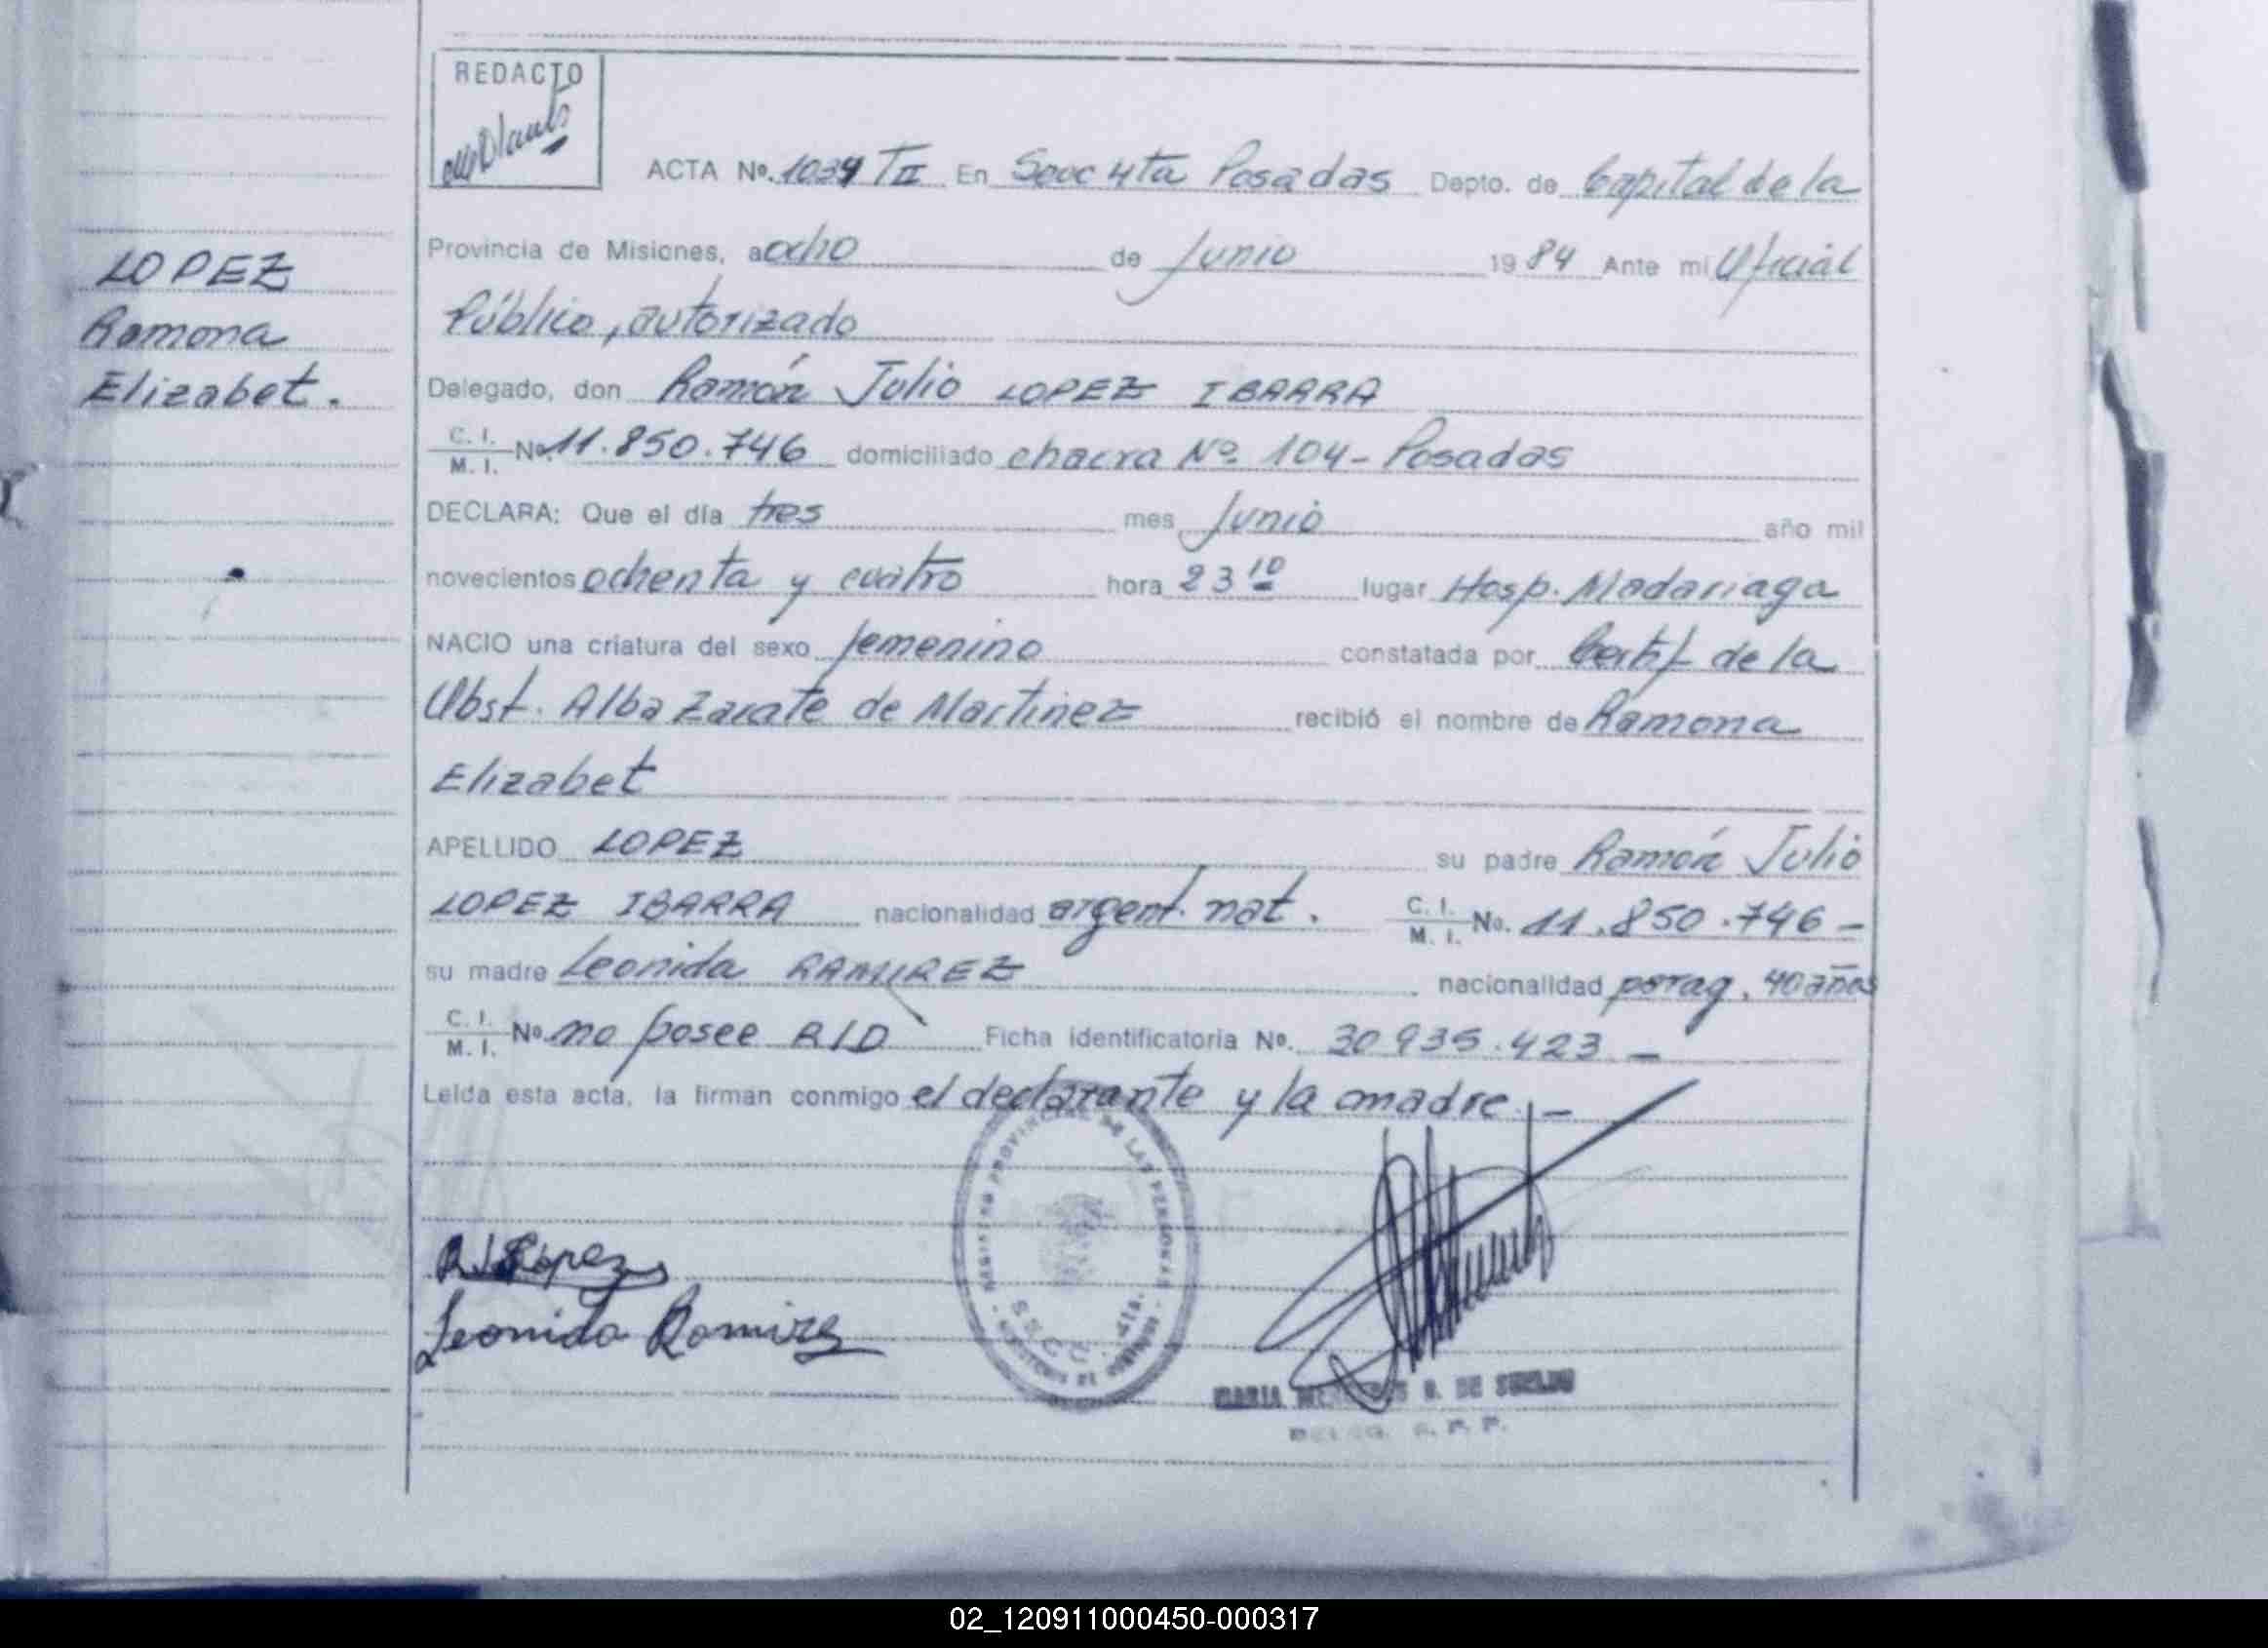 REDACTO
ACTA Nº. 1034 TII En Secc 4ta Posadas Depto. de Capital de la
Provincia de Misiones, a ocho de Junio 1984 Ante mi Oficial
Público, autorizado
LOPEZ
Ramona
Elizabet.
Delegado, don Ramón Julio LOPEZ IBARRA
C. I.
M. I. Nº 11.850.746 domiciliado chacra Nº 104 - Posadas
DECLARA: Que el día tres mes Junio año mil
novecientos ochenta y cuatro hora 23 10 lugar Hosp. Madariaga
NACIO una criatura del sexo femenino constatada por Certif de la
Obst. Alba Zarate de Martinez recibió el nombre de Ramona
Elizabet
APELLIDO LOPEZ su padre Ramón Julio
LOPEZ IBARRA nacionalidad argent. nat. C. I.
M. I. No. 11.850.746 -
su madre Leonida RAMIREZ nacionalidad parag. 40 años
C. I.
M. I. Nº no posee R/D Ficha identificatoria Nº. 30935.423 -
Leída esta acta, la firman conmigo el declarante y la madre. -
R J Lopez
Leonida Ramirez
DE LAS PERSONAS
MARIA DE SUELDO
02_120911000450-000317